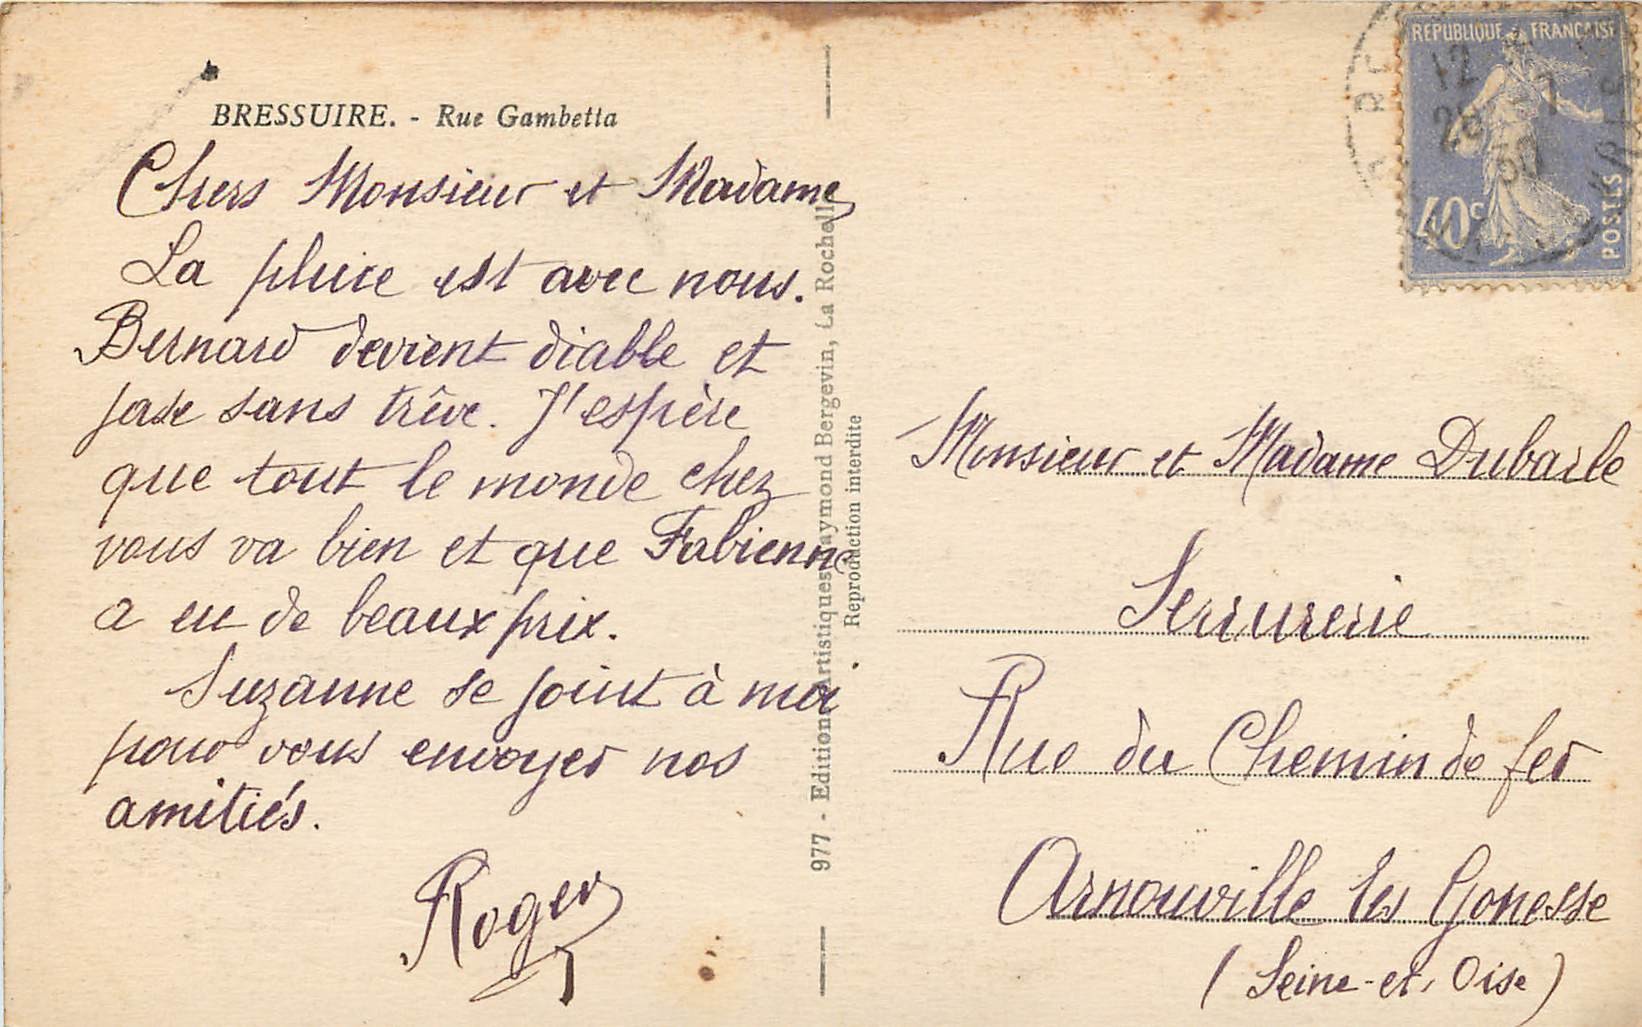 BRESSUIRE. - Rue Gambetta
Chers Monsieur et Madame
La pluie est avec nous.
Bernard devient diable et
jase sans trêve. J'espère
que tout le monde chez
vous va bien et que Fabienne
a eu de beaux prix.
Suzanne se joint à moi
pour vous envoyer nos
amitiés.
Roger
977 - Editions Artistiques Raymond Bergevin, La Rochelle
Reproduction interdite
REPUBLIQUE FRANÇAISE
40c
POSTES
12
28 -7
30
Monsieur et Madame Dubarle
Serrurerie
Rue du Chemin de fer
Arnouville les Gonesse
(Seine-et-Oise)